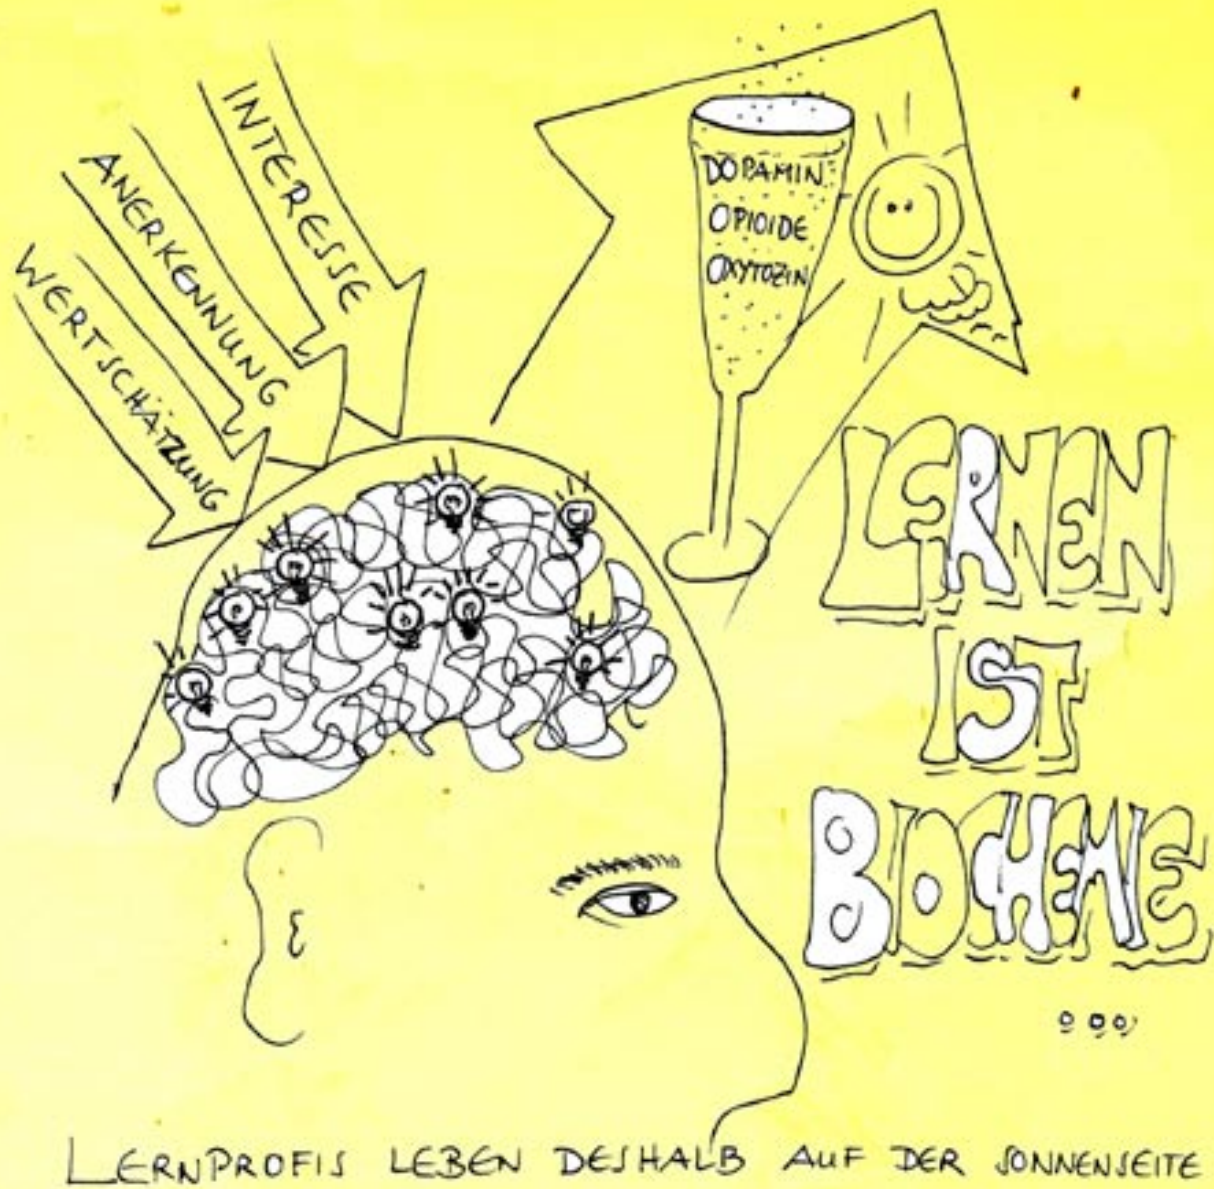 INTERESSE
ANERKENNUNG
WERTSCHÄTZUNG
DOPAMIN
OPIOIDE
OXYTOZIN
LERNEN
IST
BIOCHEMIE
...
LERNPROFIS LEBEN DESHALB AUF DER SONNENSEITE